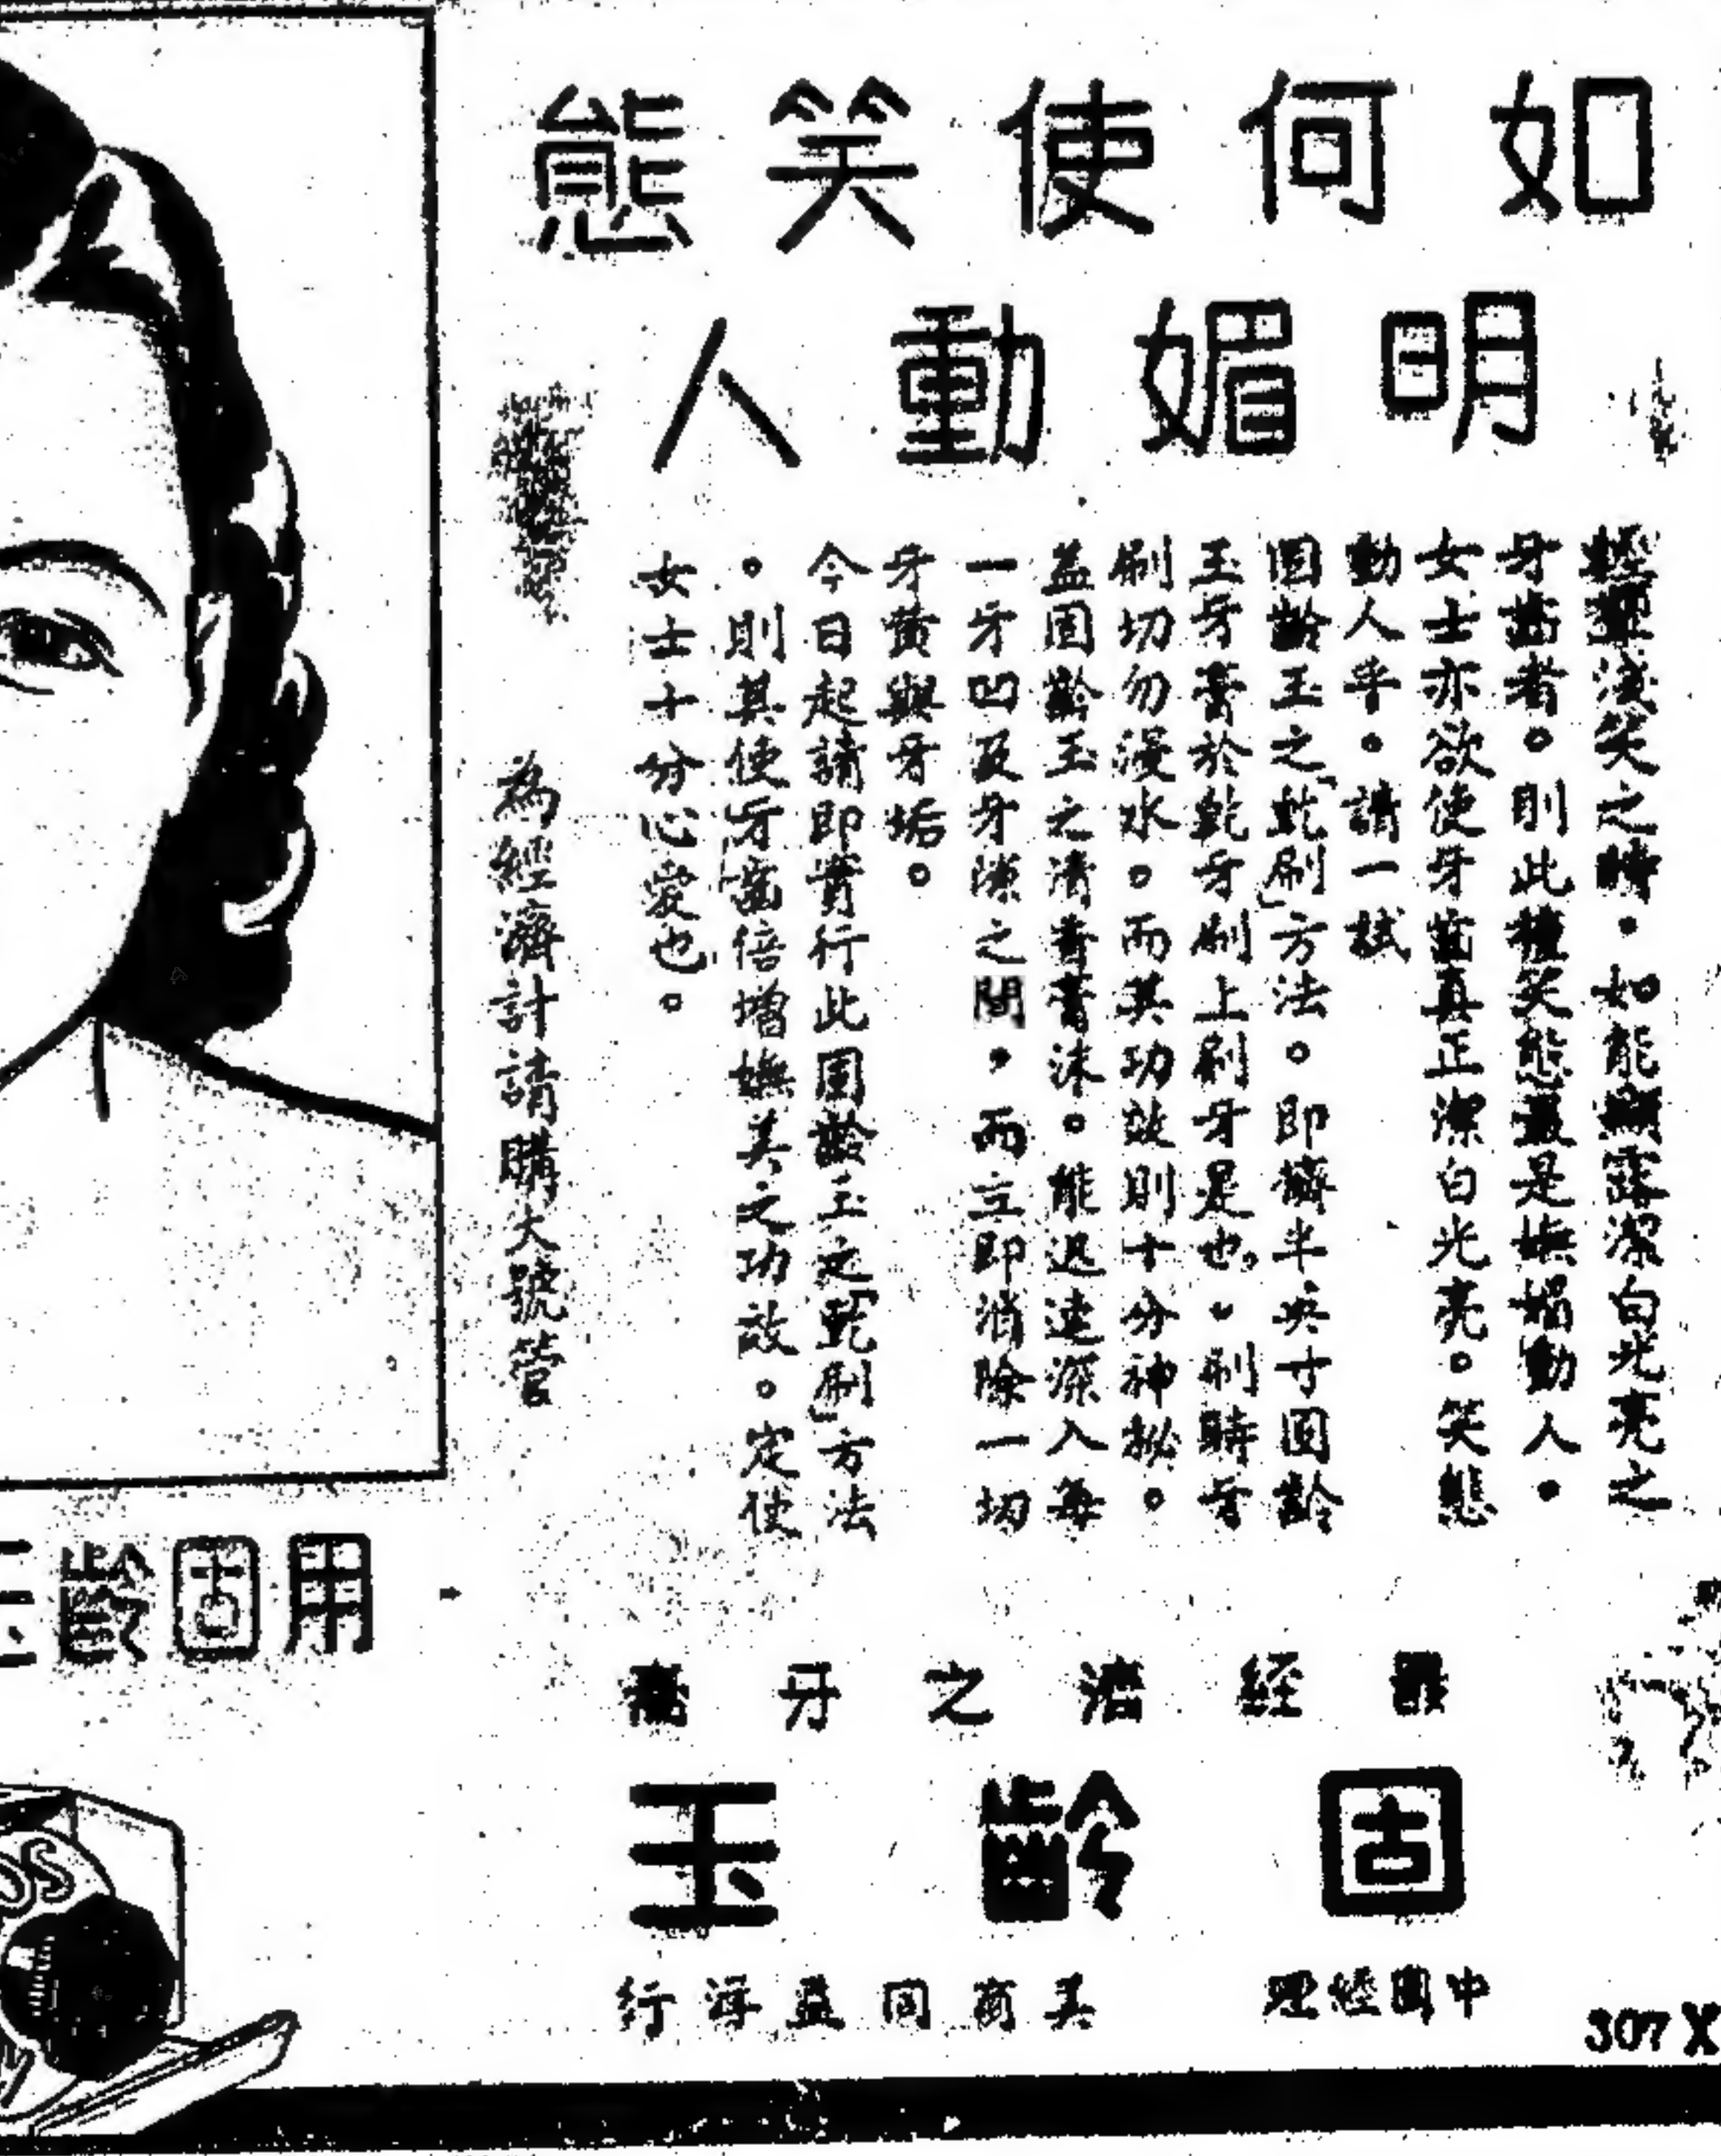 如何使笑態
明媚動人
輕顰淺笑之時。如能顯露潔白光亮之
牙齒者。則此種笑態最是嫵媚動人。
女士亦欲使牙齒真正潔白光亮。笑態
動人乎。請一試
固齡玉之「乾刷」方法。即擠半英寸固齡
玉牙膏於乾牙刷上刷牙是也。刷時牙
刷切勿浸水。而其功效則十分神秘。
益固齡玉之清香膏沫。能迅速深入每
一牙凹及牙隙之間。而立即消除一切
牙黃與牙垢。
今日起請即實行此固齡玉之「乾刷」方法
。則其使牙齒倍增嫵美之功效。定使
女士十分心愛也。
為經濟計請購大號管
用固齡玉
最經濟之牙膏
固齡玉
中國經理
美商同益洋行
307X